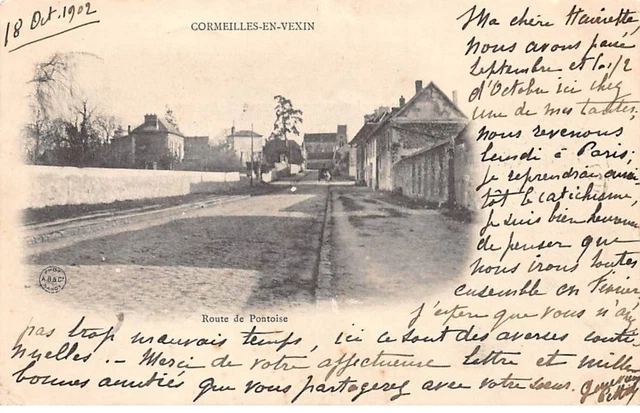 18 Oct. 1902
CORMEILLES-EN-VEXIN
Ma chère Henriette,
nous avons passé
Septembre et la 1/2
d'Octobre ici chez
une de mes tantes.
nous revenons
lundi à Paris;
je reprendrai aussi
tôt le catéchisme,
je suis bien heureuse
de penser que
nous irons toutes
ensemble en
j'espère que vous n'avez
pas trop mauvais temps, ici ce sont des averses conti-
nuelles. - Merci de votre affectueuse lettre et mille
bonnes amitiés que vous partagerez avec votre soeur.
Route de Pontoise